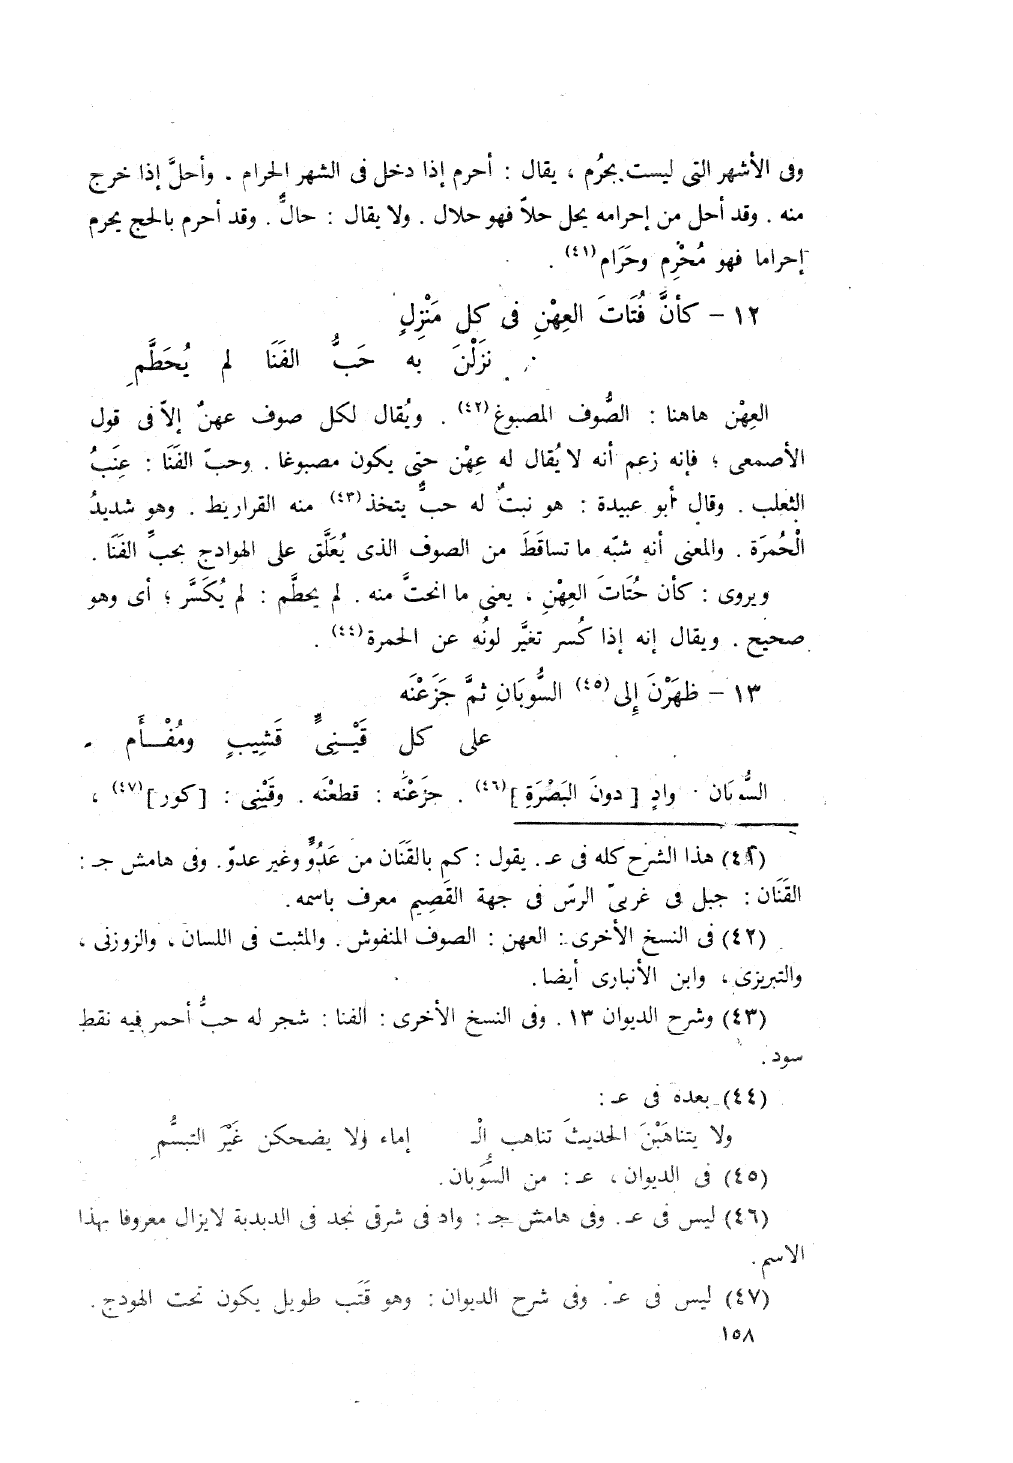 وفى الأشهر التى ليست بحُرُم ، يقال : أحرم إذا دخل فى الشهر الحرام . وأحلَّ إذا خرج
منه . وقد أحل من إحرامه يحل حلاّ فهو حلال . ولا يقال : حالٌّ . وقد أحرم بالحج يحرم
إحراما فهو مُحْرِم وحَرَام(٤١) .
١٢ – كأنَّ فُتَاتَ العِهْنِ فى كل مَنْزِلٍ
نَزَلْنَ به حَبُّ الفَنَا لم يُحَطَّمِ
العِهْن هاهنا : الصُّوف المصبوغ(٤٢) . ويُقال لكل صوف عهنٌ إلاّ فى قول
الأصمعى ؛ فإنه زعم أنه لا يُقال له عِهْن حتى يكون مصبوغا . وحبّ الفَنَا : عِنَبُ
الثعلب . وقال أبو عبيدة : هو نبتٌ له حبٌّ يتخذ(٤٣) منه القراريط . وهو شديدُ
الْحُمرَة . والمعنى أنه شبّه ما تساقَطَ من الصوف الذى يُعَلَّق على الهوادج بحبِّ الفَنَا .
ويروى : كأن حُتَاتَ العِهْنِ ، يعنى ما انحتَّ منه . لم يحطَّم : لم يُكَسَّر ؛ أى وهو
صحيح . ويقال إنه إذا كُسر تغيَّر لونُه عن الحمرة(٤٤) .
١٣ – ظهَرْنَ إلى(٤٥) السُّوبَانِ ثمَّ جَزَعْنَه
على كل قَيْـنِىٍّ قَشِيبٍ ومُفْـأَم .
السُّوبَان . وادٍ [ دونَ البَصْرَة ](٤٦) . جزَعْنَه : قطعْنَه . وقَيْنِى : [كور](٤٧) ،
(٤١) هذا الشرح كله فى عـ . يقول : كم بالقَنَان من عَدُوٍّ وغير عدوّ . وفى هامش جـ :
القَنَان : جبل فى غربىّ الرسّ فى جهة القَصِيم معرف باسمه .
(٤٢) فى النسخ الأخرى : العهن : الصوف المنفوش . والمثبت فى اللسان ، والزوزنى ،
والتبريزى ، وابن الأنبارى أيضا .
(٤٣) وشرح الديوان ١٣ . وفى النسخ الأخرى : الفنا : شجر له حبٌّ أحمر فيه نقط
سود .
(٤٤) بعده فى عـ :
ولا يتناهَبْنَ الحديثَ تناهب الْـ إماء ولا يضحكن غَيْرَ التبسُّمِ
(٤٥) فى الديوان ، عـ : من السُّوبان .
(٤٦) ليس فى عـ . وفى هامش جـ : واد فى شرقى نجد فى الدبدبة لايزال معروفا بهذا
الاسم .
(٤٧) ليس فى عـ . وفى شرح الديوان : وهو قَتَب طويل يكون تحت الهودج .
١٥٨